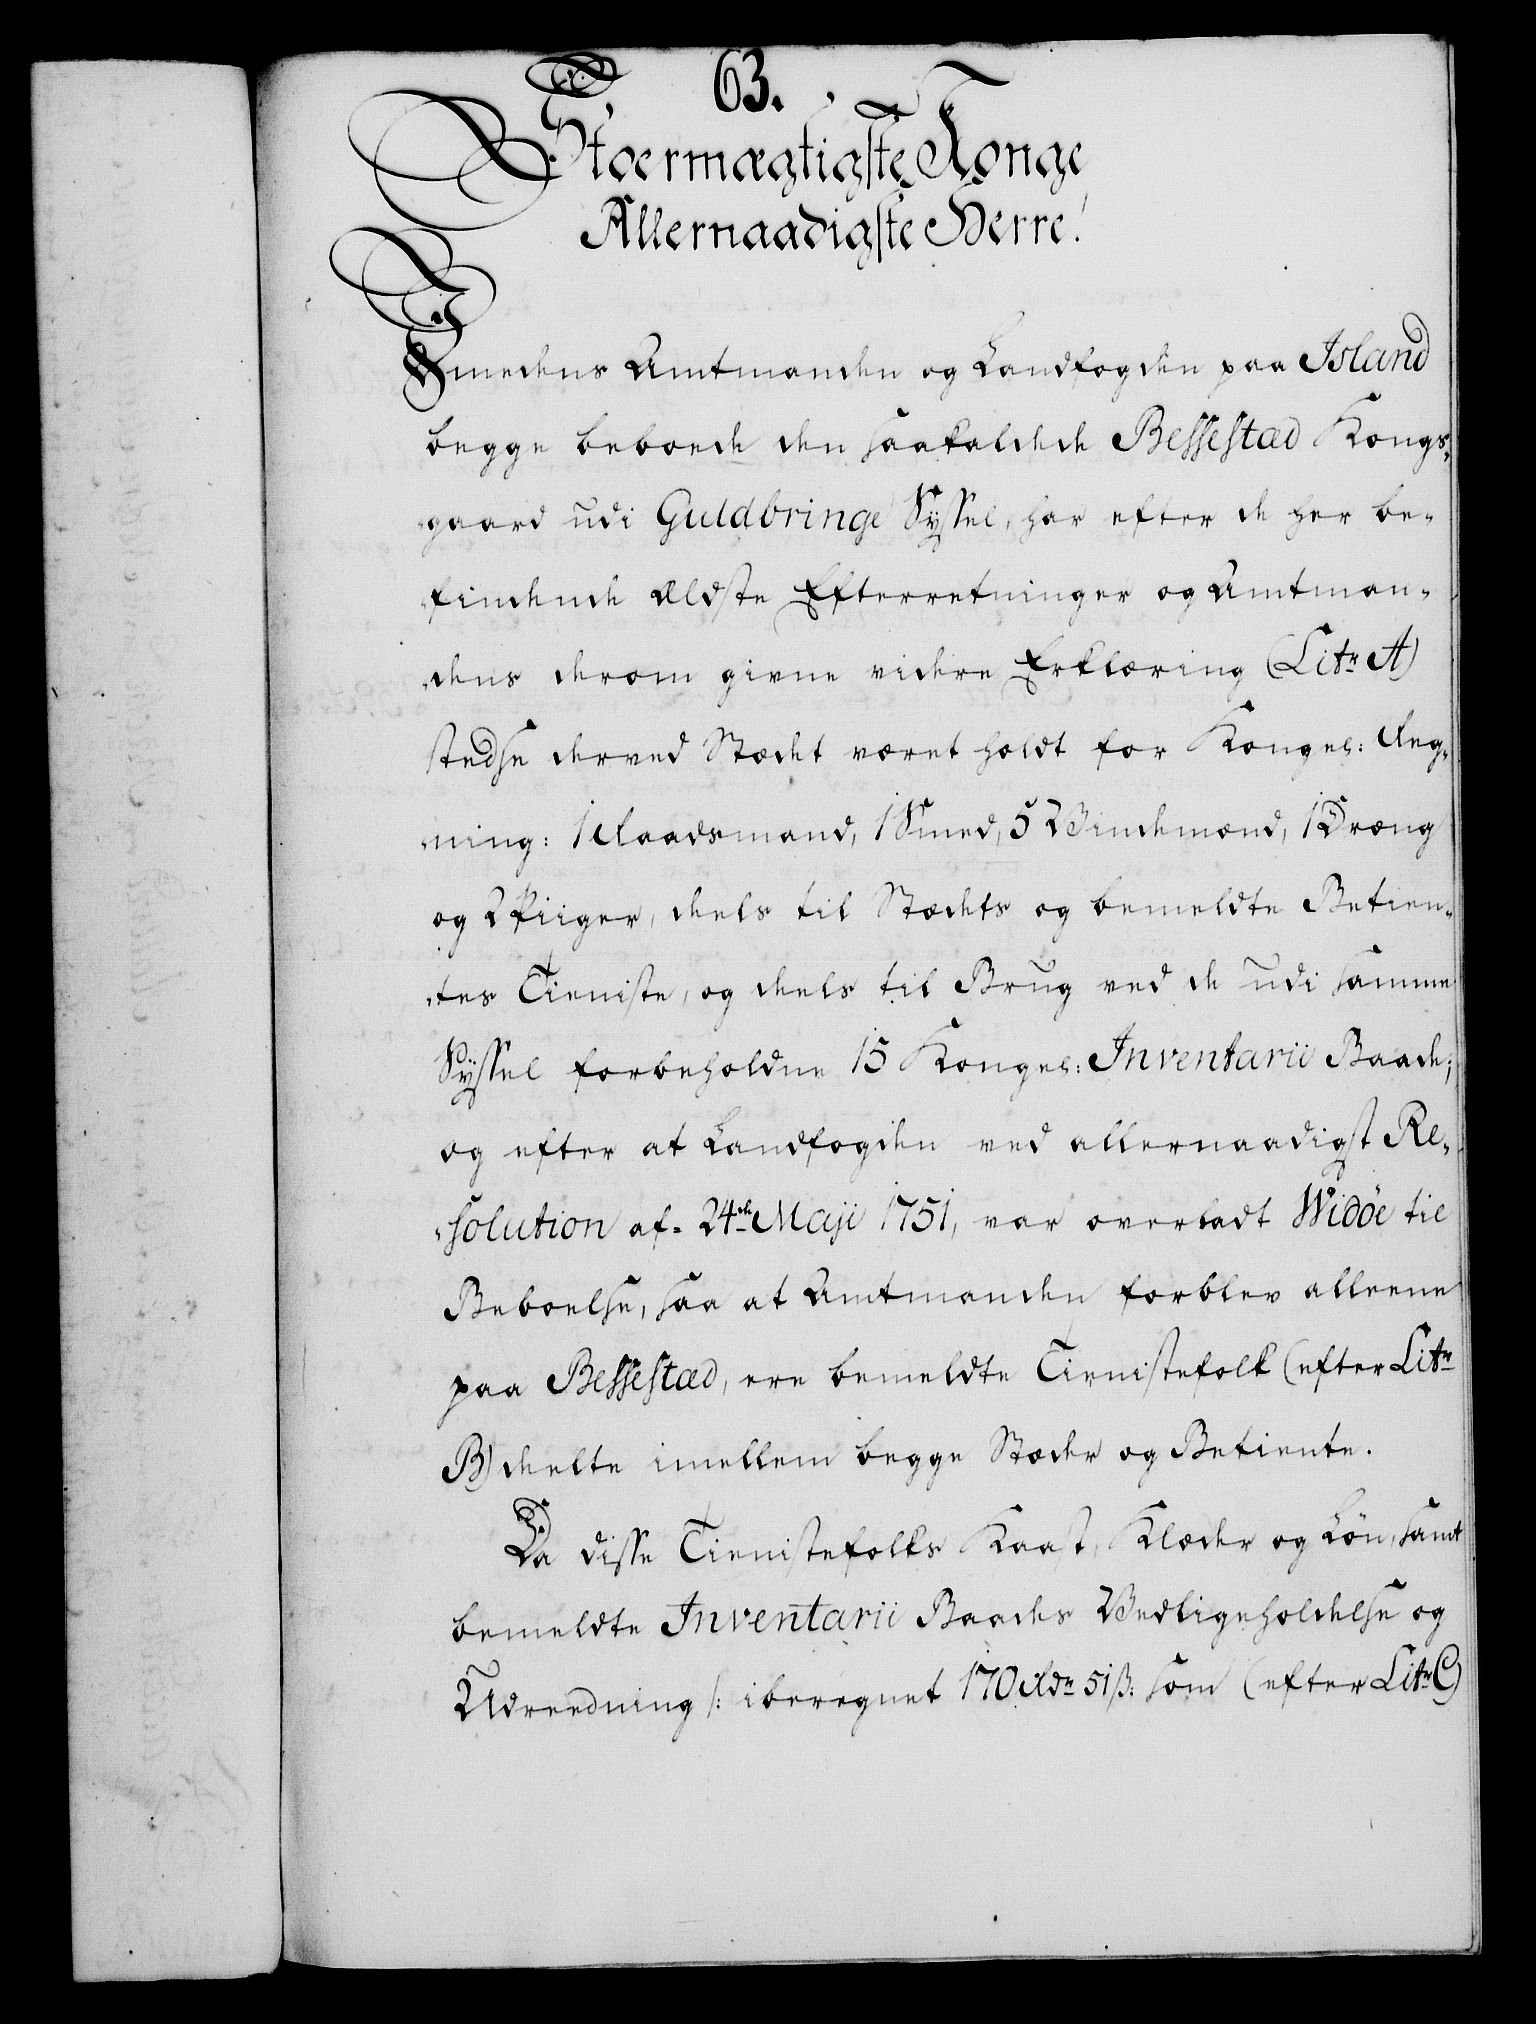 63.
Stoermægtigste Konge
Allernaadigste Herre!
Imedens Amtmanden og Landfogden paa Island
begge beboede den saakaldede Bessestæd Kongs-
gaard udi Guldbringe Syssel, har efter de her be-
findende ældste Efterretninger og Amtman-
dens derom givne videre Erklæring (Litr A)
stedse derved Stædet været holdt for Kongel: Reg-
ning: 1 Raadsmand, 1 Smed, 5 Vindemænd, 1 Dræng
og 2 Piiger, deels til Stædets og bemeldte Betien-
tes Tieniste, og deels til Brug ved de udi samme
Syssel forbeholdne 15 Kongel: Inventarii Baade;
og efter at Landfogden ved allernaadigst Re-
solution af 24de Maji 1751, var overladt Widöe til
Beboelse, saa at Amtmanden forblev alleene
paa Bessestæd, ere bemeldte Tienistefolk (efter Litr
B) deelte imellem begge Stæder og Betiente.
Da disse Tienistefolks Kaast, Klæder og Løn, samt
bemeldte Inventarii Baades Vedligeholdelse og
Udreedning /: iberegnet 170 Rdr 51 ß: som (efter Litr C)